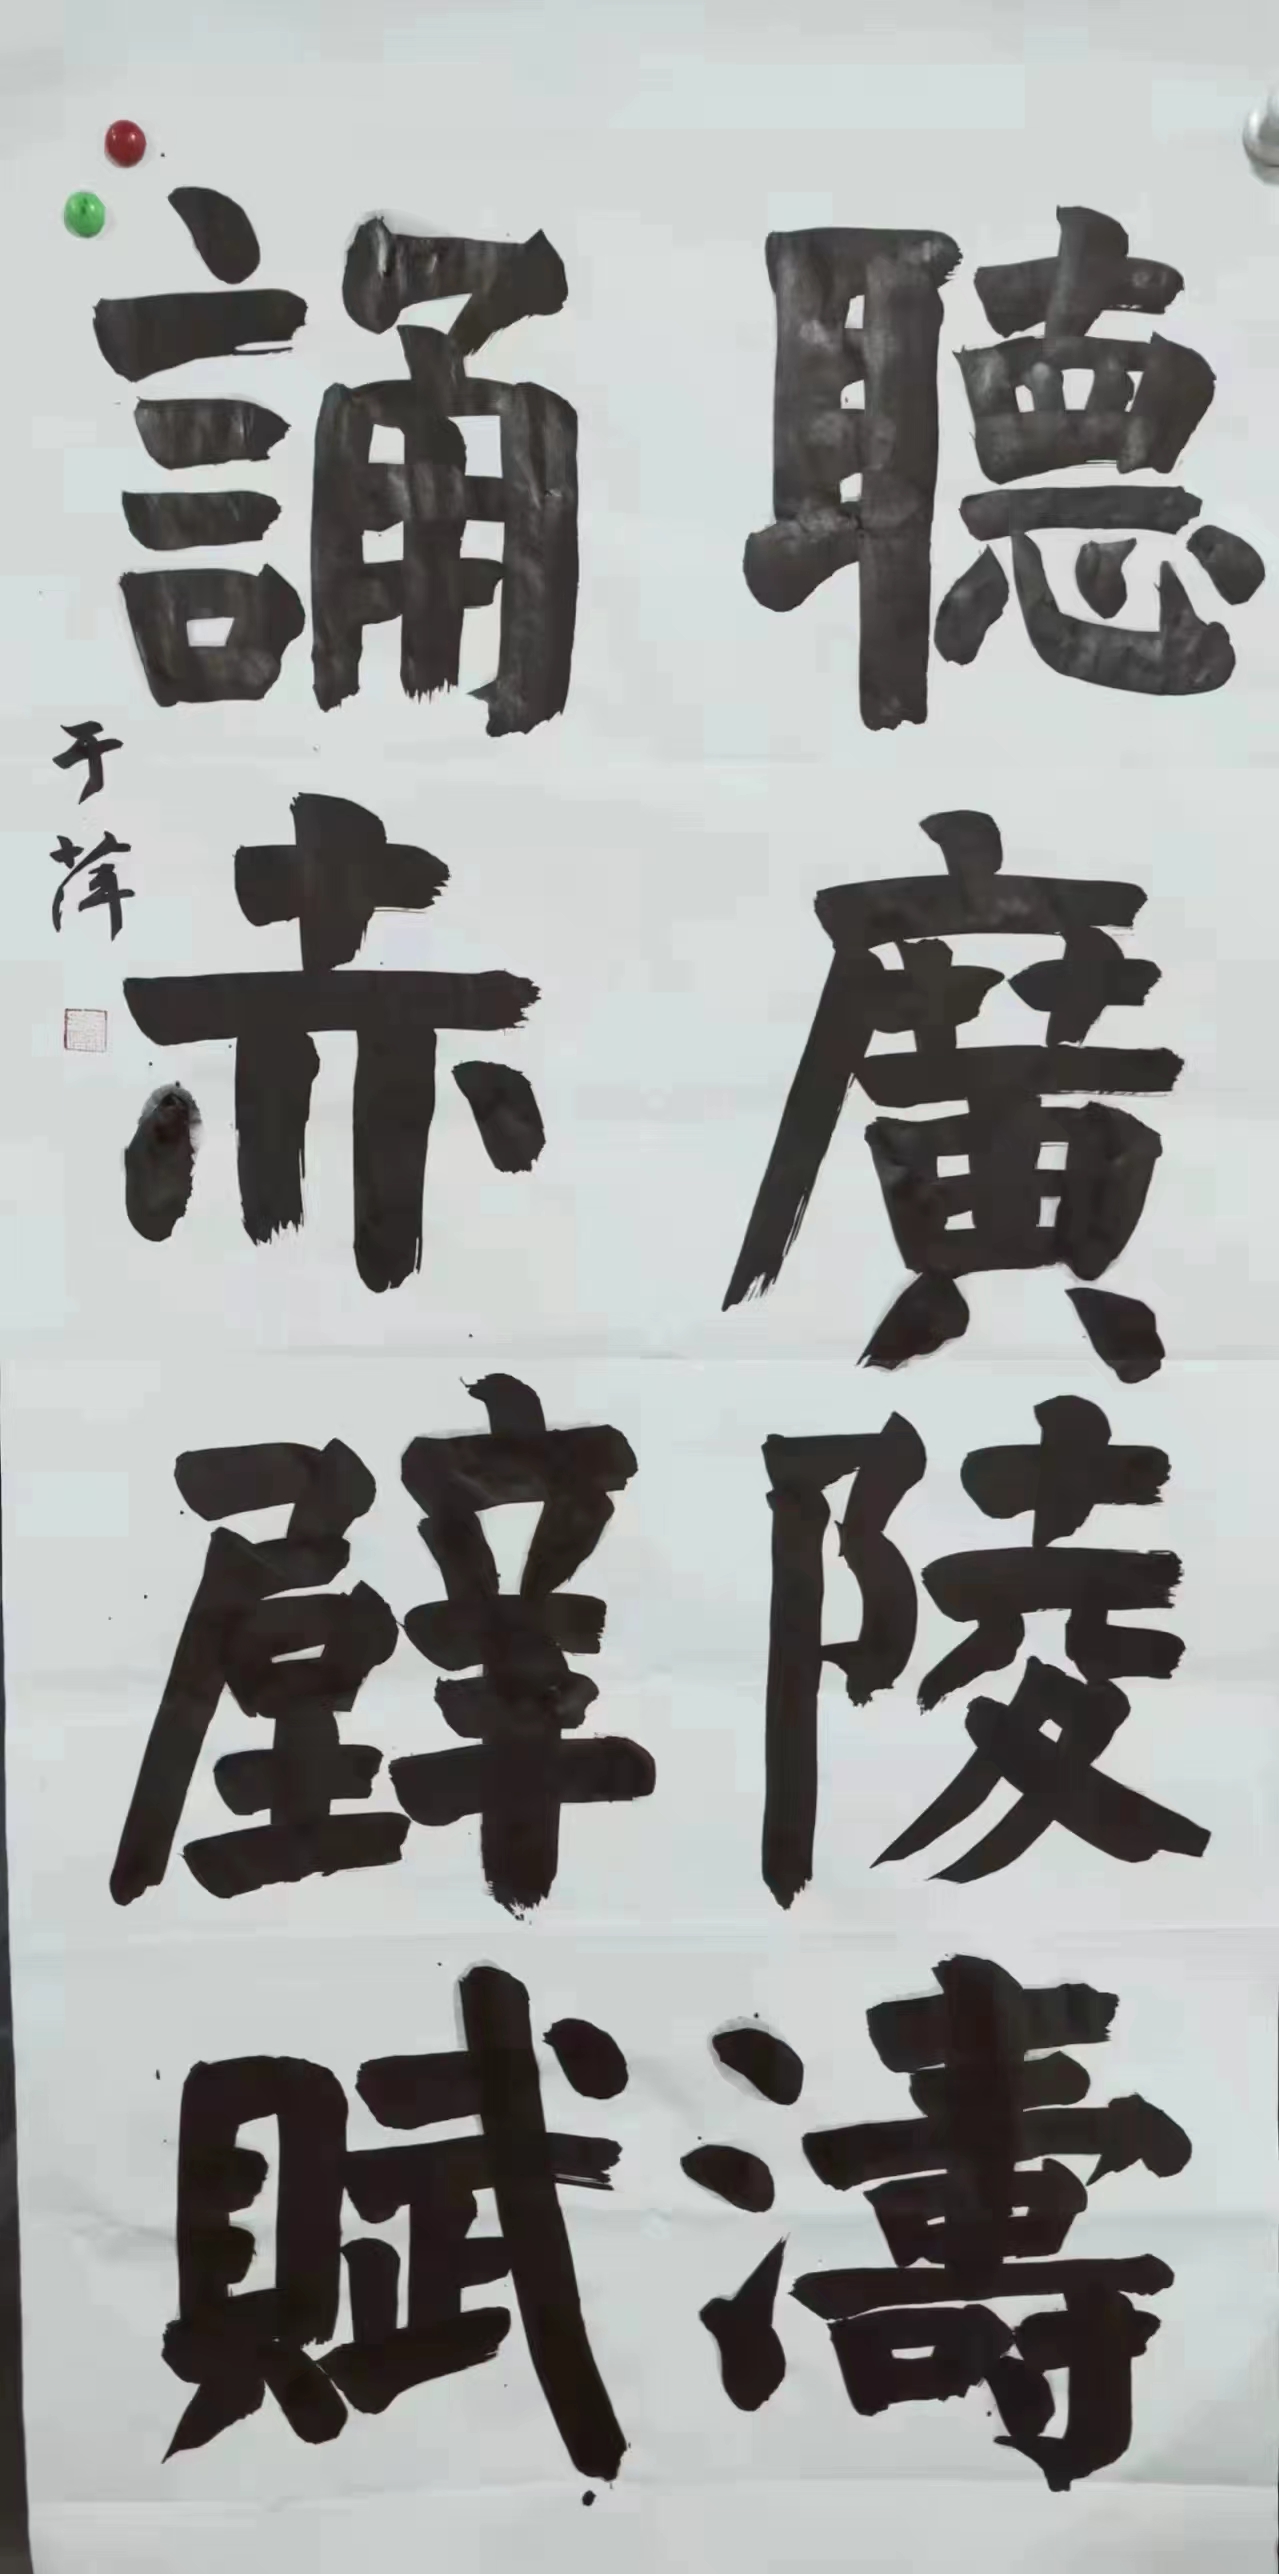 聽廣陵濤
誦赤壁賦
于萍